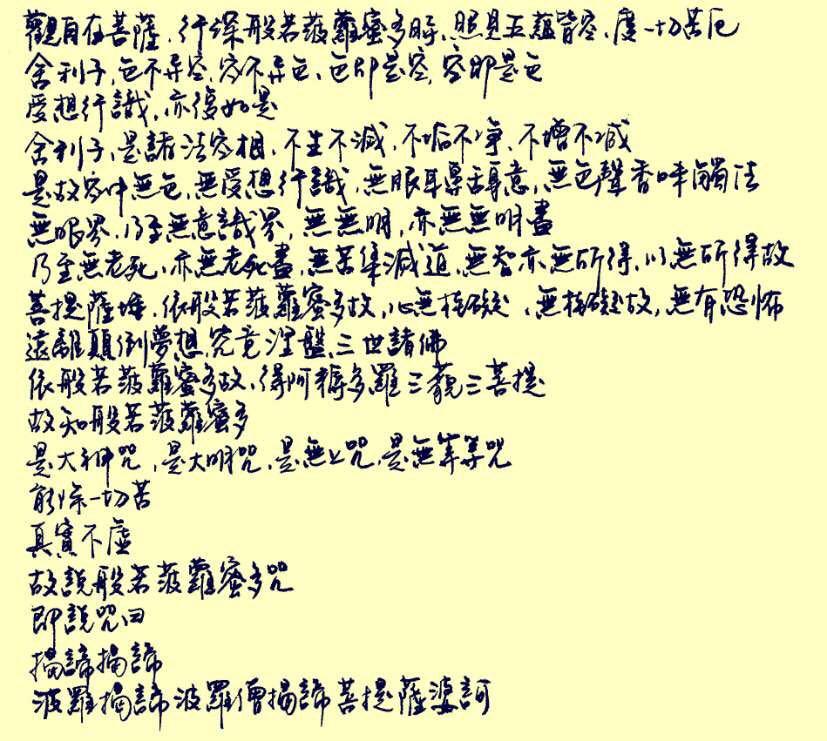 觀自在菩薩，行深般若菠蘿蜜多時，照見五蘊皆空，度一切苦厄
舍利子，色不異空，空不異色，色即是空，空即是色
受想行識，亦復如是
舍利子，是諸法空相，不生不滅，不垢不淨，不增不減
是故空中無色，無受想行識，無眼耳鼻舌身意，無色聲香味觸法
無眼界，乃至無意識界，無無明，亦無無明盡
乃至無老死，亦無老死盡，無苦集滅道，無智亦無所得，以無所得故
菩提薩埵，依般若菠蘿蜜多故，心無桂礙，無桂礙故，無有恐怖
遠離顛倒夢想，究竟涅盤，三世諸佛
依般若菠蘿蜜多故，得阿耨多羅三藐三菩提
故知般若菠蘿蜜多
是大神咒，是大明咒，是無上咒，是無等等咒
能除一切苦
真實不虛
故說般若菠蘿蜜多咒
即說咒曰
揭諦揭諦
波羅揭諦波羅僧揭諦菩提薩婆訶